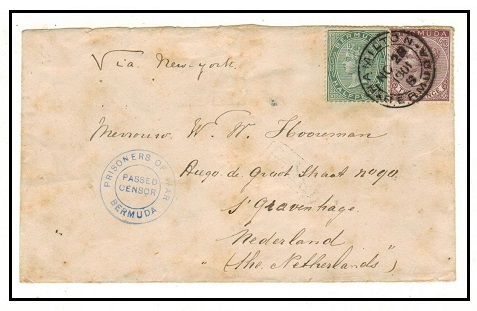 Via New-york.
BERMUDA
HALFPENNY
HAMILTON
NO 28
1901
BERMUDA
Mevrouw W. W. Hooreman
Hugo de Groot Straat no 90.
s'Gravenhage.
Nederland
(the Netherlands")
PRISONERS OF WAR
PASSED
CENSOR
BERMUDA